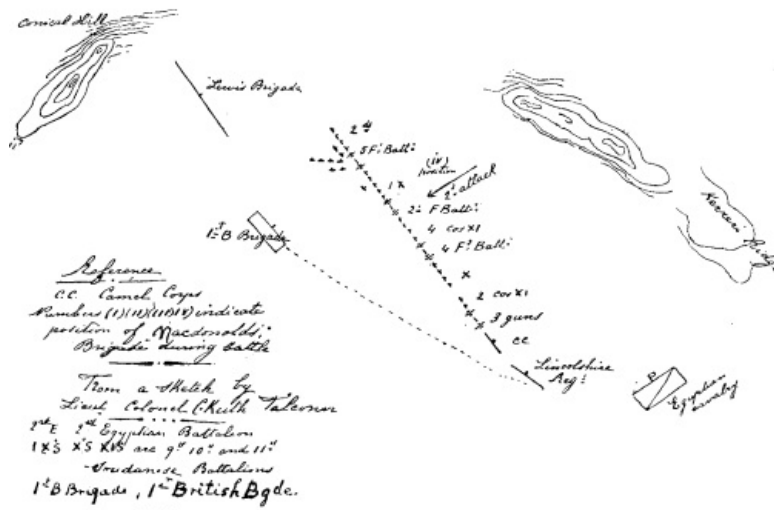 Conical Hill
Lewis Brigade
2nd
5 F. Batt:
(iv)
position
2nd attack
1 X
2nd F Batt:
4 cos XI
4 Fd Batt:
X
2 cos XI
3 guns
CC
Lincolnshire
Reg:
Kerreri
Egyptian
cavalry
1st B Brigade
Reference
C.C. Camel Corps
Numbers (I)(II)(III)(IV) indicate
position of Macdonolds:
Brigade during battle
From a sketch by
Lieut Colonel C. Keith Falconer
2nd E 2nd Egyptian Battalion
1X's X's XI's are 9th 10th and 11th
-Soudanese Battalions
1st B Brigade, 1st British Bgde.